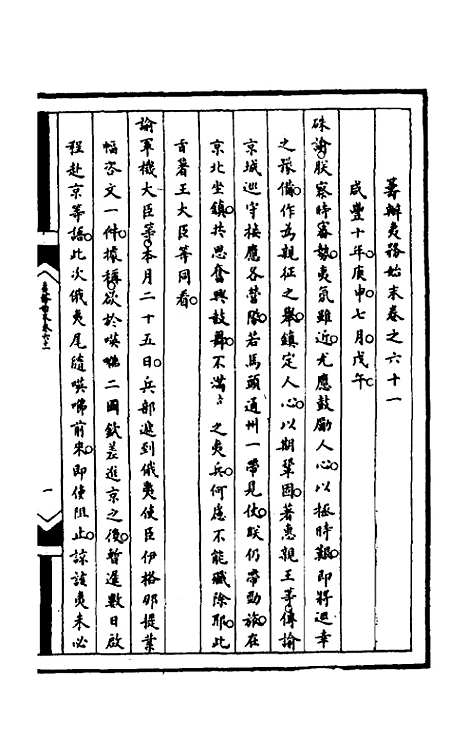 籌辦夷務始末卷之六十一
咸豐十年庚申七月戊午
硃諭朕察時審勢夷氛雖近尤應鼓勵人心以拯時艱即將巡幸
之豫備作為親征之舉鎮定人心以期鞏固著惠親王等傳諭
京城巡守接應各營隊若馬頭通州一帶見仗朕仍帶勁旅在
京北坐鎮共思奮興鼓舞不滿萬之夷兵何慮不能殲除耶此
旨著王大臣等同看
諭軍機大臣等本月二十五日兵部遞到俄夷使臣伊格那提業
幅咨文一件據稱欲於㗸咈二國欽差進京之後暫遲數日啟
程赴京等語此次俄夷尾隨㗸咈前來即使阻止諒該夷未必
一